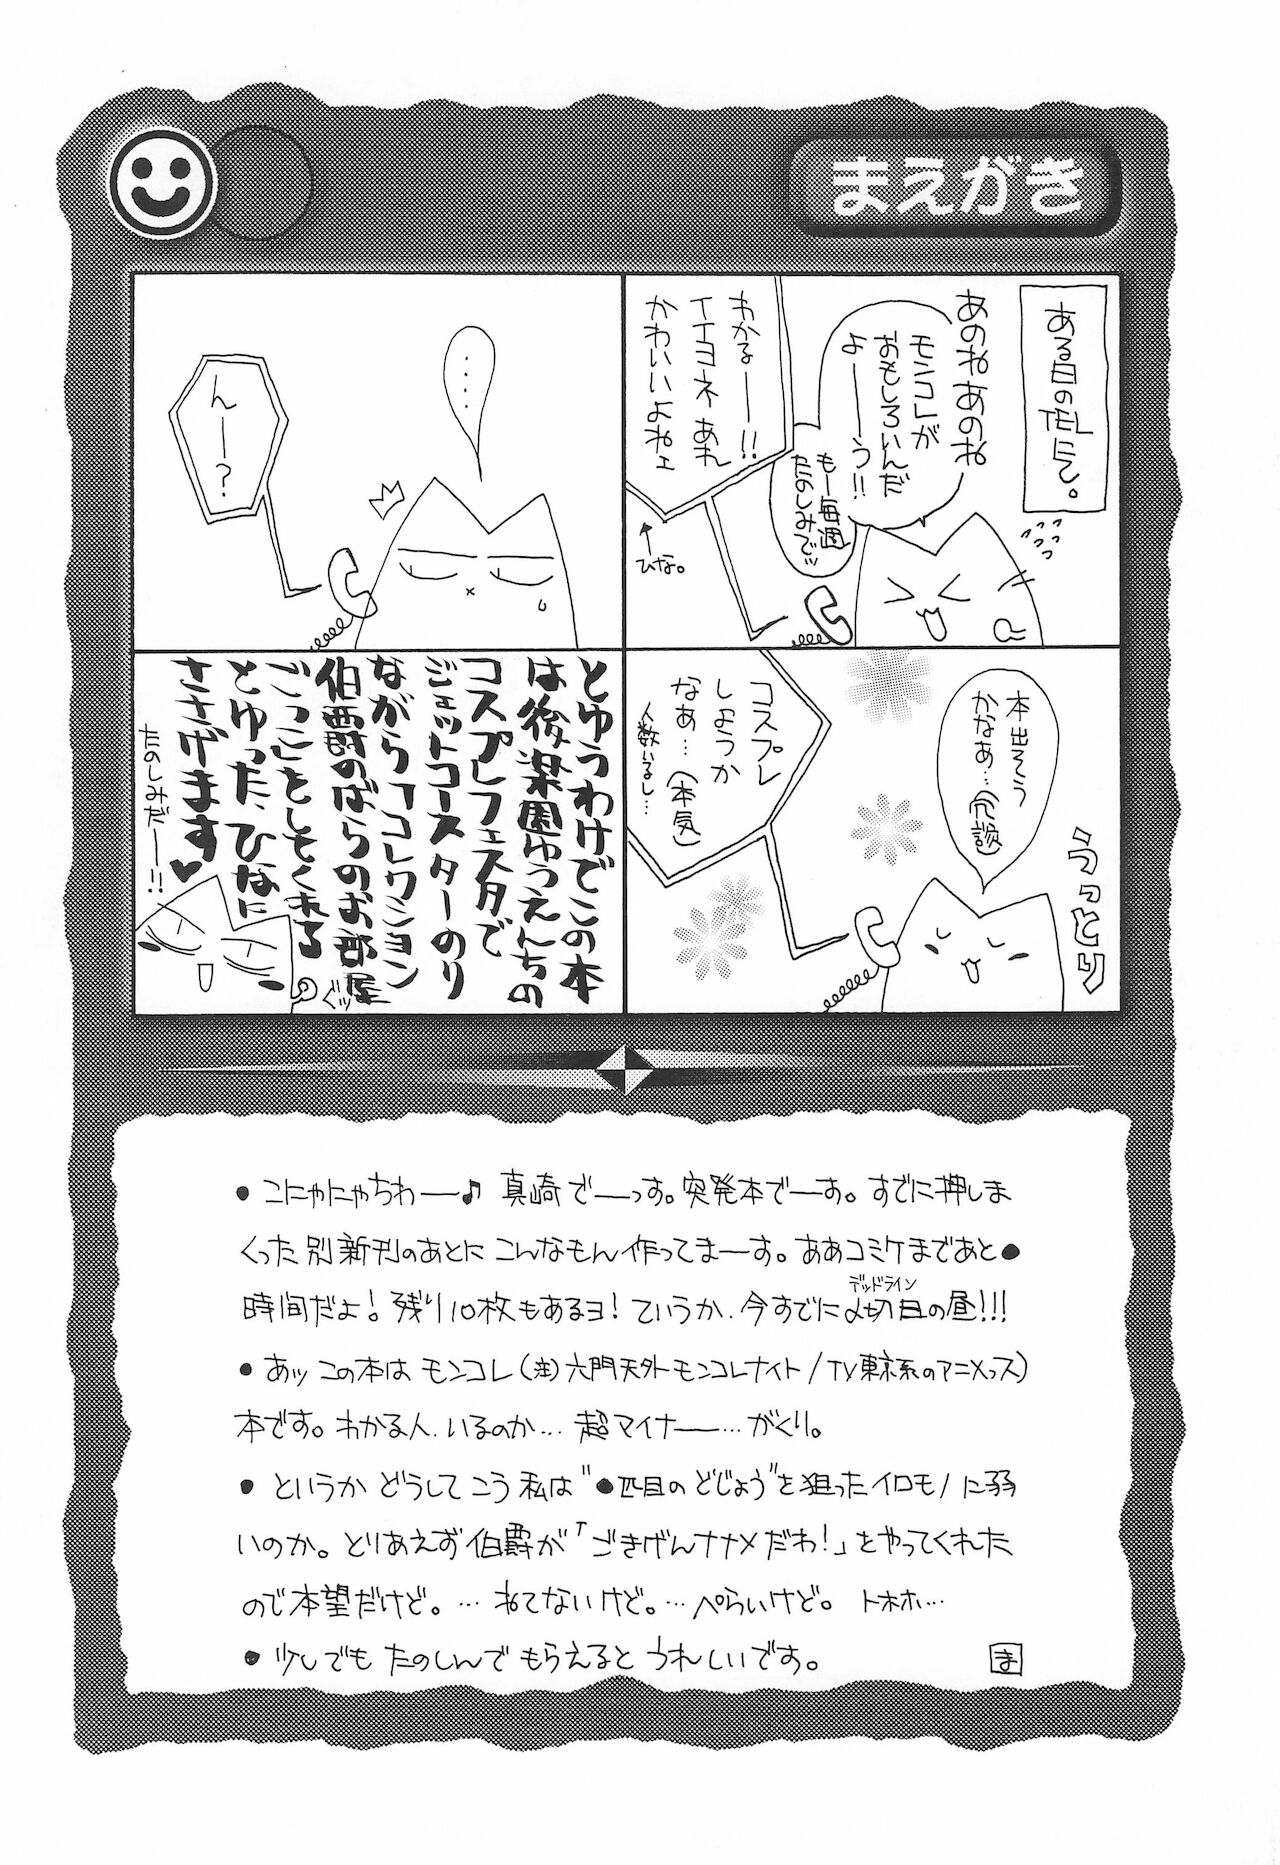 まえがき
ある日のTELにて。
あのねあのね
モンコレが
おもしろいんだ
よーーう!!
もー毎週
たのしみでッ
わかるーー!!
イイヨネあれ
かわいいよねェ
ひな。
‥‥
んーー?
本出そう
かなぁ…(冗談)
うっとり
コスプレ
しようか
なぁ…(本気)
人数いるし…
とゆうわけでこの本
は後楽園ゆうえんちの
コスプレフェスタで
ジェットコースターのり
ながら「コレクション
伯爵のばらのお部屋
ごっこ」をしてくれる
とゆった、ひなに
ささげます♥
たのしみだーー!!
ぐッ
●こにゃにゃちわー♪ 真崎でーっす。突発本でーす。すでに押しま
くった別新刊のあとにこんなもん作ってまーす。ああコミケまであと●
時間だよ!残り10枚もあるヨ!ていうか、今すでに〆切日の昼!!!
デッドライン
●あッこの本はモンコレ(注)六門天外モンコレナイト/TV東京系のアニメっス)
本です。わかる人、いるのか…超マイナー…がくり。
●というかどうしてこう私は"●匹目のどじょう"を狙ったイロモノに弱
いのか。とりあえず伯爵が「ごきげんナナメだわ!」をやってくれた
ので本望だけど。…ねてないけど。…ぺらいけど。トホホ…
●少しでもたのしんでもらえるとうれしいです。 ま